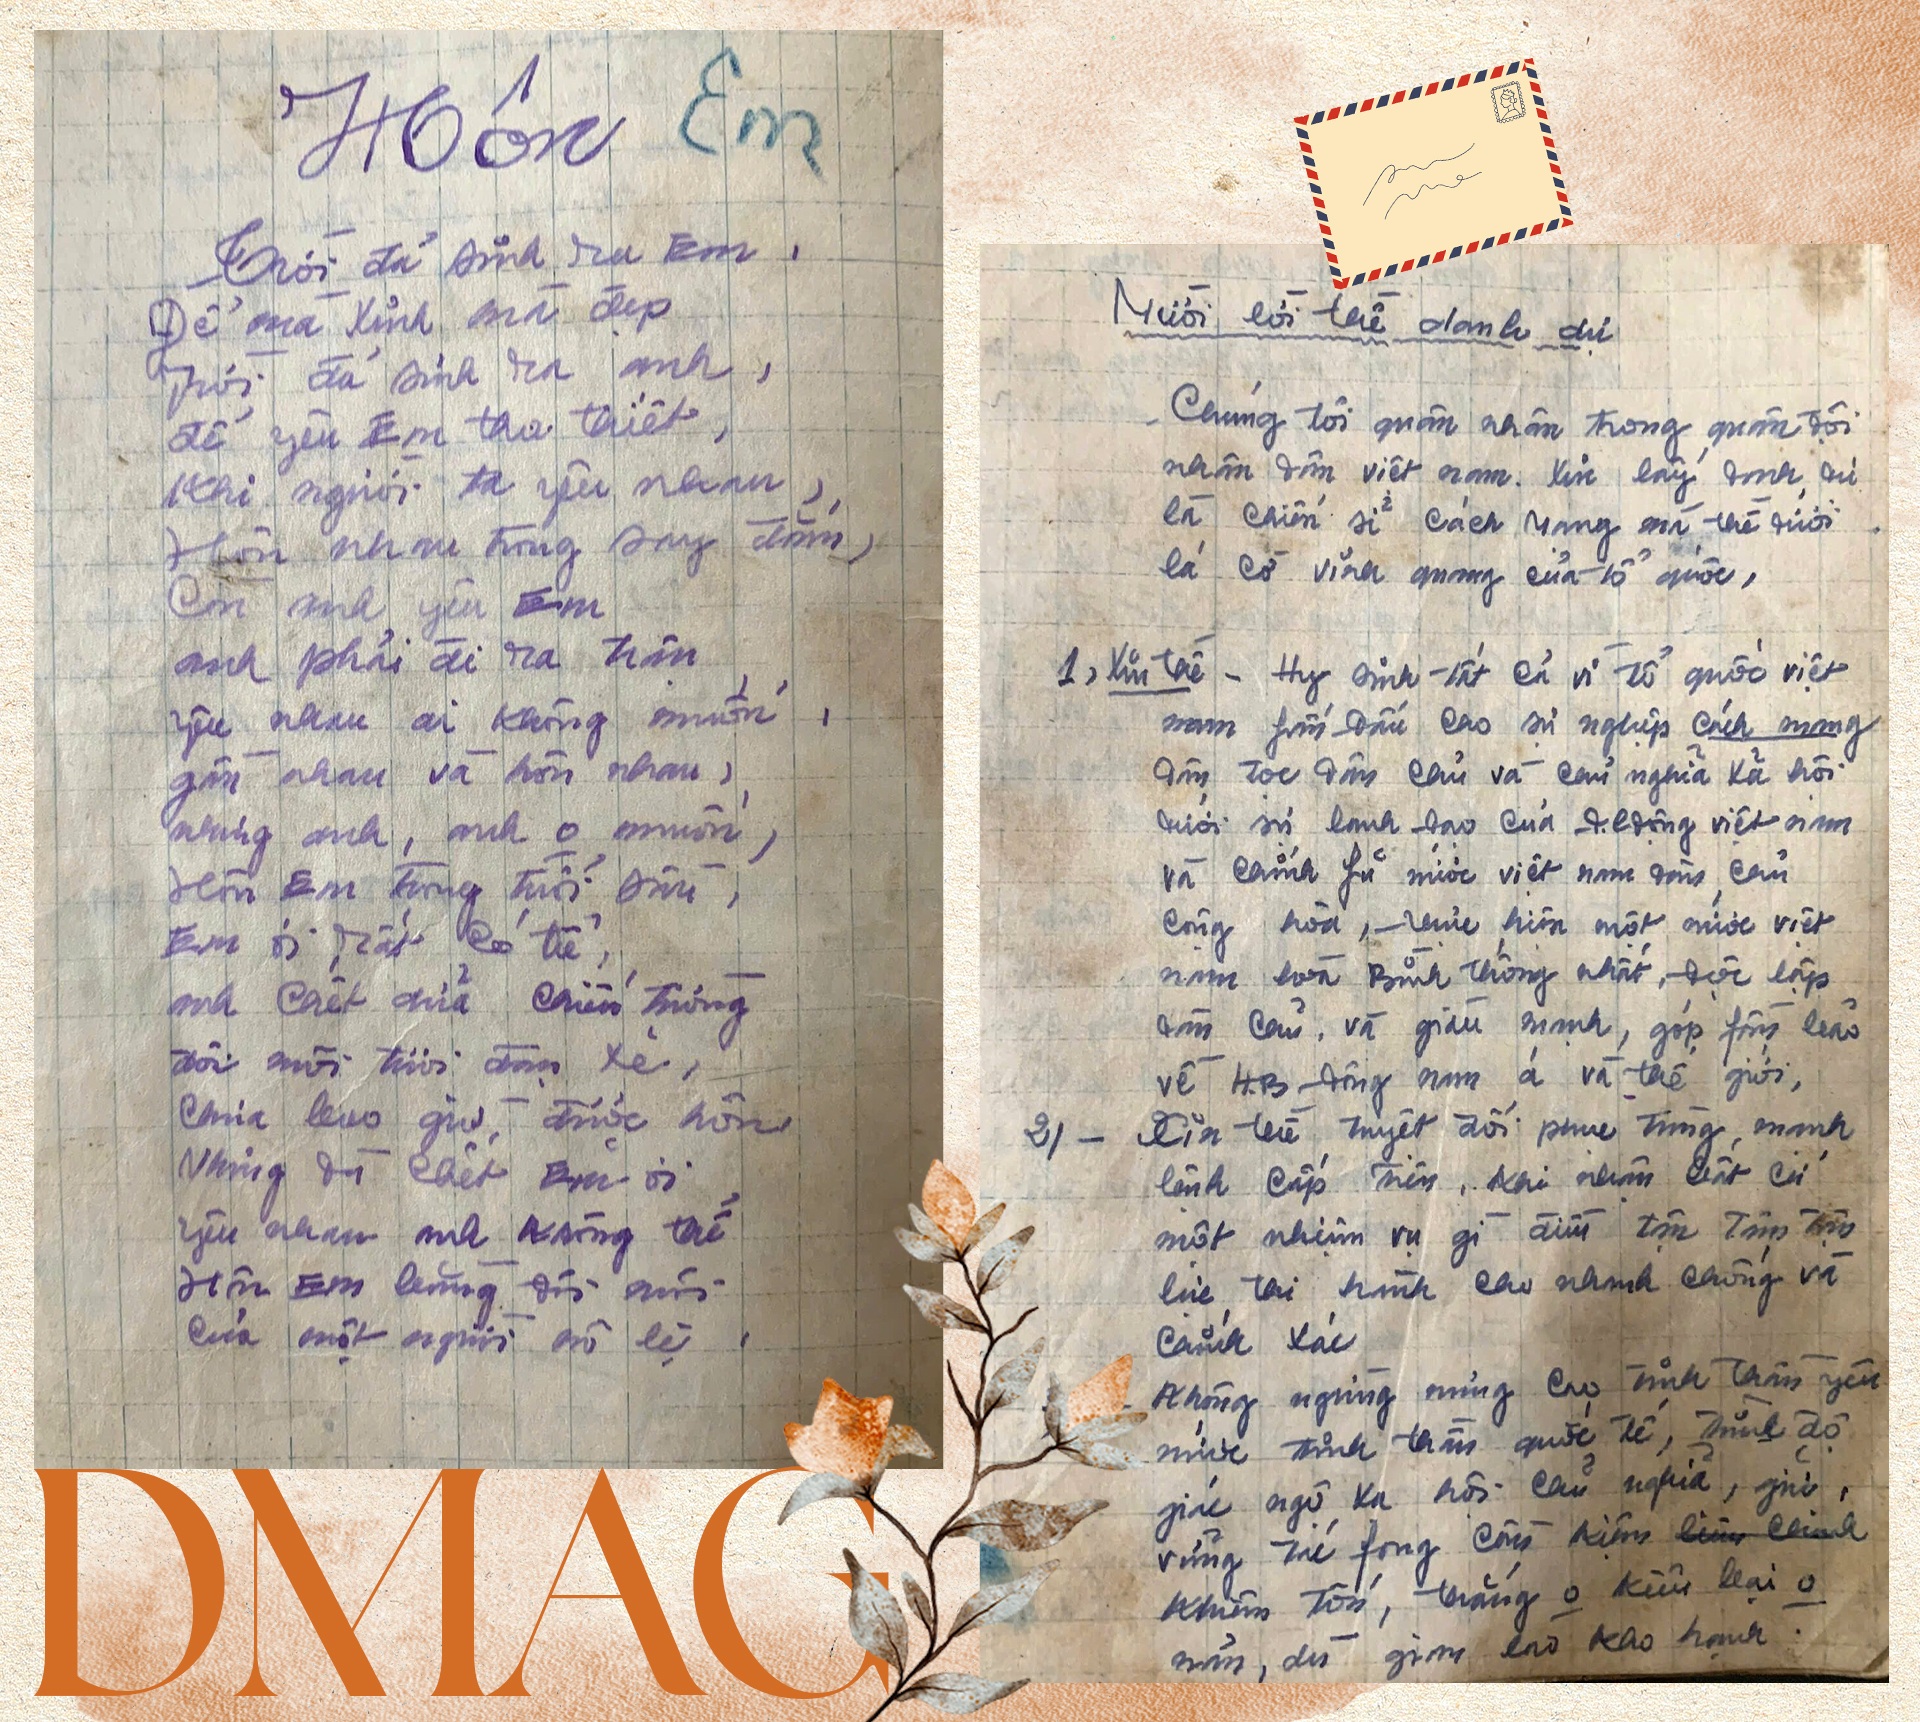 Hôn Em
Trời đã sinh ra Em,
Để mà xinh mà đẹp
Trời đã sinh ra anh,
để yêu Em tha thiết,
Khi người ta yêu nhau,
Hôn nhau trong say đắm,
Còn anh yêu Em
anh phải đi ra trận
yêu nhau ai không muốn,
gần nhau và hôn nhau,
nhưng anh, anh o muốn,
Hôn Em trong tuổi sầu,
Em ơi rất có thể,
anh chết giữa chiến trường
đôi môi tươi đạn xé,
Chưa bao giờ được hôn,
Nhưng dù chết Em ơi
yêu nhau anh không thể
Hôn Em bằng đôi môi
Của một người nô lệ.
Mười lời thề danh dự
- Chúng tôi quân nhân trong quân đội
nhân dân việt nam. Xin lấy danh dự
là chiến sĩ cách mạng mà thề dưới
lá cờ vinh quang của tổ quốc,
1, Xin thề - Hy sinh tất cả vì tổ quốc việt
nam fấn đấu cho sự nghiệp cách mạng
dân tộc dân chủ và chủ nghĩa xã hội
dưới sự lãnh đạo của đ.lđộng việt nam
và chính fủ nước việt nam dân chủ
cộng hòa, thực hiện một nước việt
nam hoà Bình thống nhất, độc lập
dân chủ, và giàu mạnh, góp fần bảo
vệ H.B đông nam á và thế giới,
2, - Xin thề tuyệt đối phục tùng mệnh
lệnh cấp trên, khi nhận bất cứ
một nhiệm vụ gì đều tận tâm tận
lực thi hành cho nhanh chóng và
chính xác
- Không ngừng nâng cao tinh thần yêu
nước tinh thần quốc tế, trình độ
giác ngộ xã hội chủ nghĩa, giữ
vững tác fong cần kiệm liêm chính
khiêm tốn, thắng o kiêu bại o
nản, dù gian lao khó hạnh.
DMAG